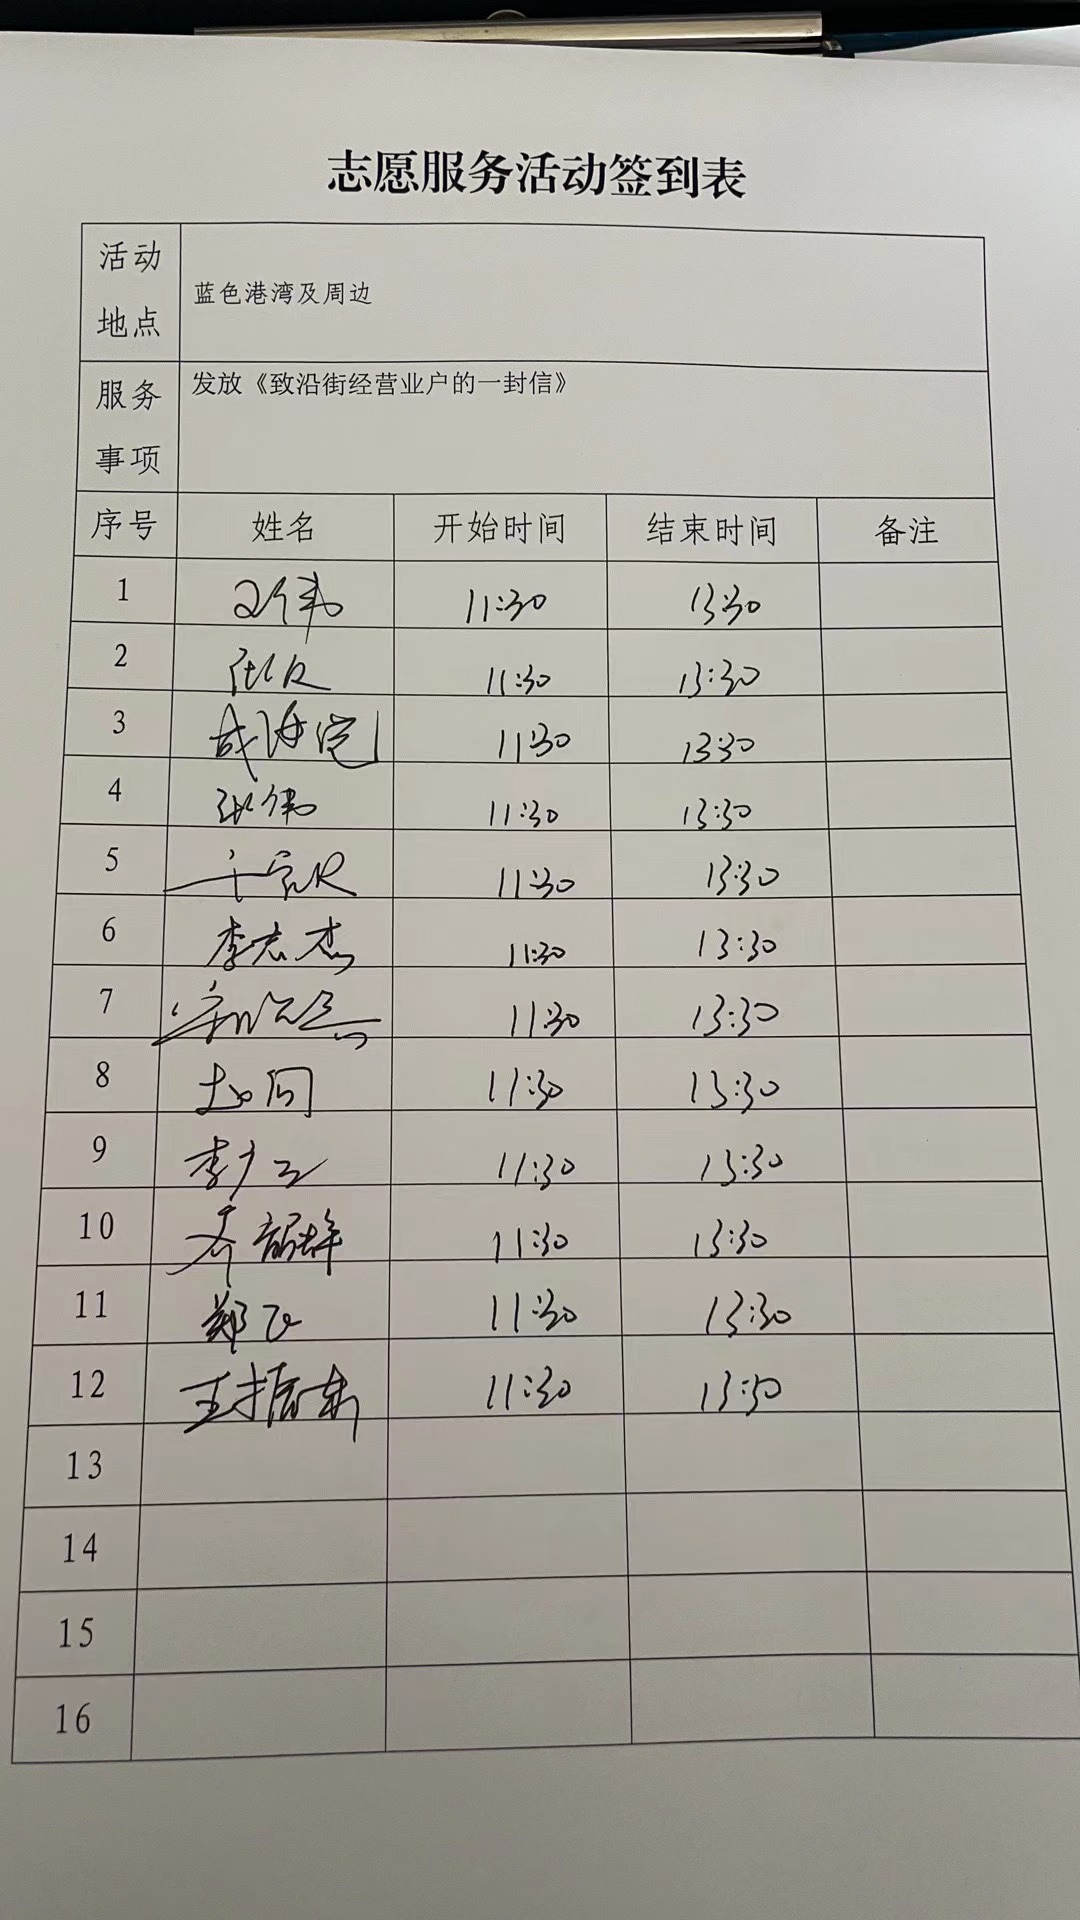 志愿服务活动签到表
活动地点 蓝色港湾及周边
服务事项 发放《致沿街经营业户的一封信》
序号 姓名 开始时间 结束时间 备注
1 王伟 11:30 13:30
2 11:30 13:30
3 11:30 13:30
4 张伟 11:30 13:30
5 11:30 13:30
6 李志杰 11:30 13:30
7 11:30 13:30
8 11:30 13:30
9 11:30 13:30
10 11:30 13:30
11 郑飞 11:30 13:30
12 11:30 13:30
13
14
15
16